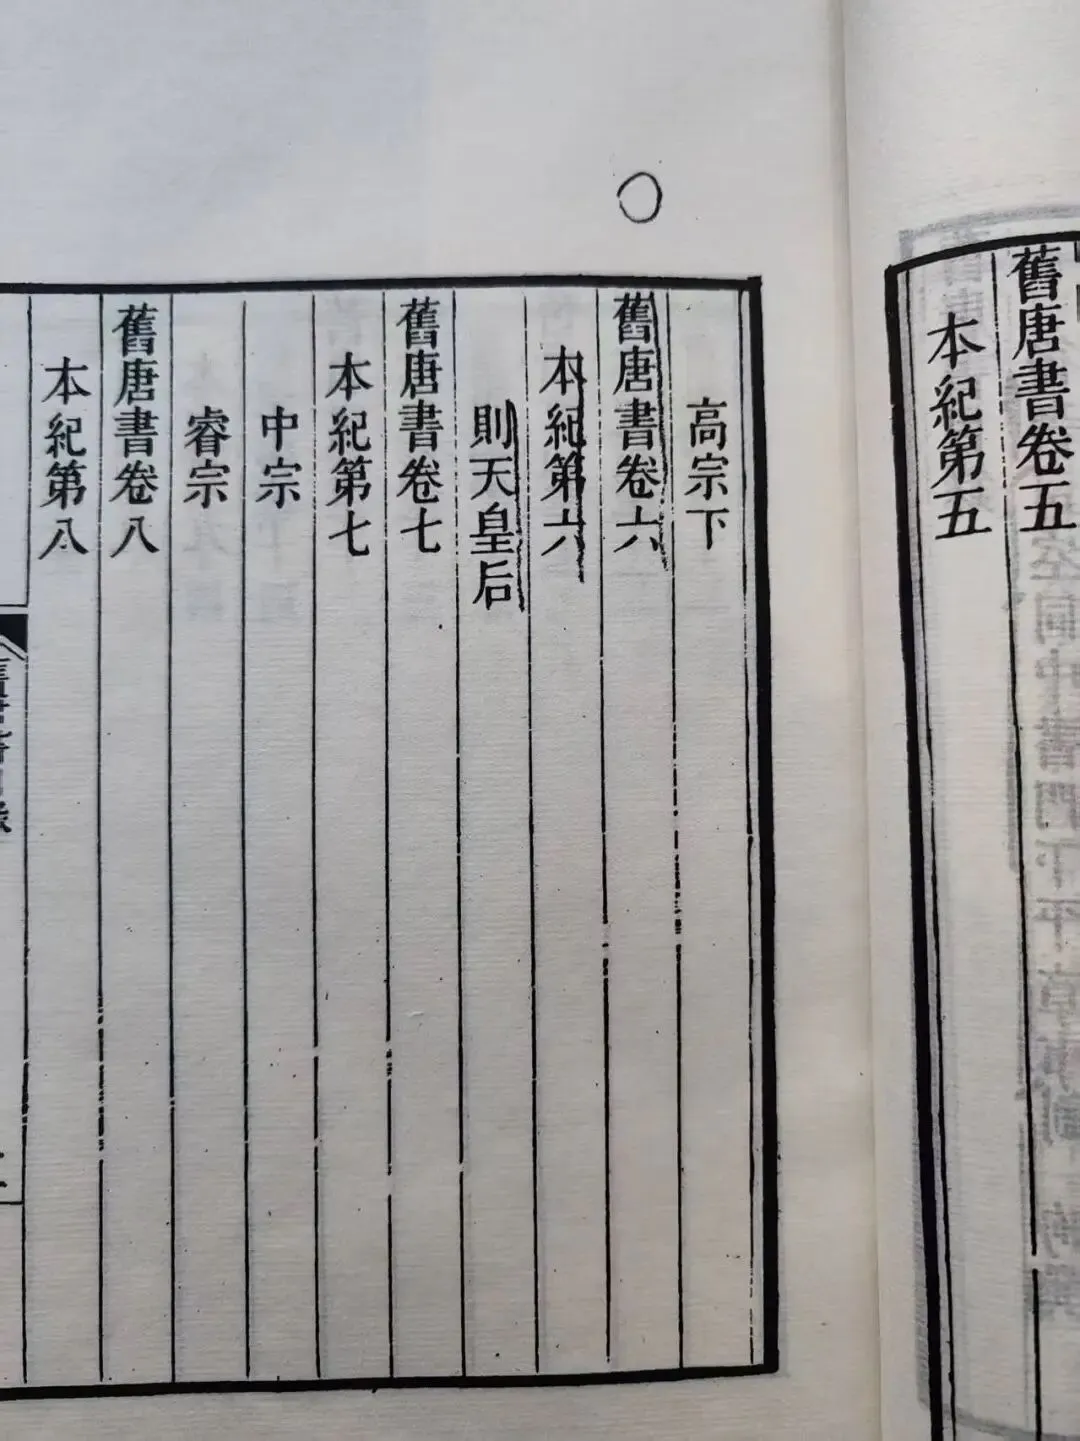 舊唐書卷五
本紀第五
高宗下
舊唐書卷六
本紀第六
則天皇后
舊唐書卷七
本紀第七
中宗
睿宗
舊唐書卷八
本紀第八